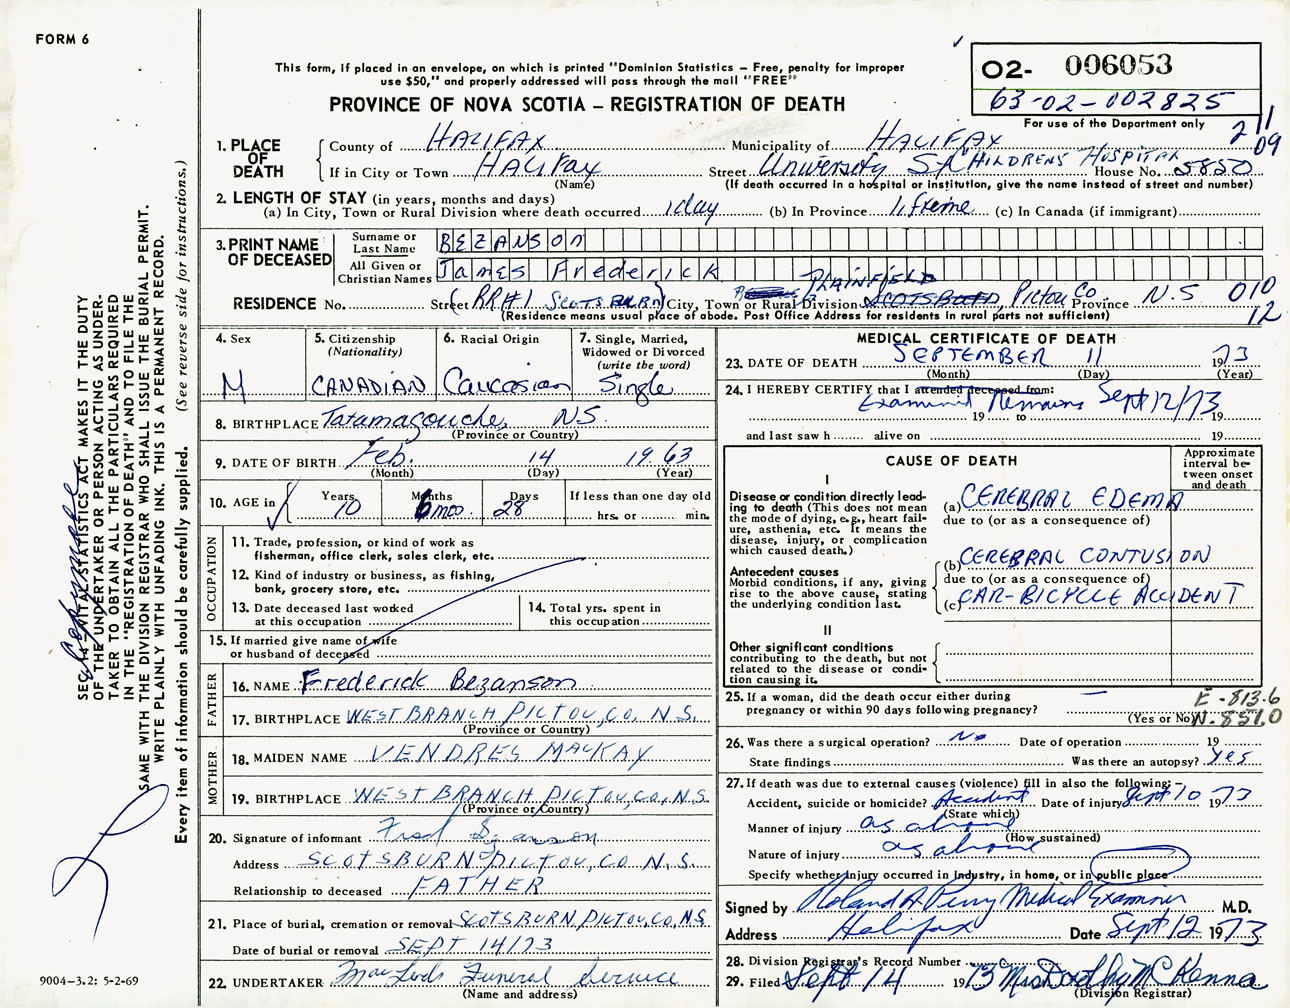 FORM 6
This form, if placed in an envelope, on which is printed "Dominion Statistics – Free, penalty for improper
use $50," and properly addressed will pass through the mail "FREE"
PROVINCE OF NOVA SCOTIA – REGISTRATION OF DEATH
02- 006053
63-02-002825
For use of the Department only
211
09
1. PLACE OF DEATH
County of HALIFAX Municipality of HALIFAX
If in City or Town HALIFAX (Name) Street University St CHILDRENS HOSPITAL House No. 5850
(If death occurred in a hospital or institution, give the name instead of street and number)
2. LENGTH OF STAY (in years, months and days)
(a) In City, Town or Rural Division where death occurred 1 day (b) In Province lifetime (c) In Canada (if immigrant)
3. PRINT NAME OF DECEASED
Surname or Last Name BEZANSON
All Given or Christian Names James Frederick
PLAINFIELD
RESIDENCE No. Street (RR#1 SCOTSBURN) City, Town or Rural Division SCOTSBURN Pictou Co Province N.S 010
12
(Residence means usual place of abode. Post Office Address for residents in rural parts not sufficient)
4. Sex M
5. Citizenship (Nationality) CANADIAN
6. Racial Origin Caucasian
7. Single, Married, Widowed or Divorced (write the word) Single
8. BIRTHPLACE Tatamagouche, N.S.
(Province or Country)
9. DATE OF BIRTH Feb. 14 1963
(Month) (Day) (Year)
10. AGE in Years 10 Months 6 mos. Days 28 If less than one day old hrs. or min.
OCCUPATION
11. Trade, profession, or kind of work as fisherman, office clerk, sales clerk, etc.
12. Kind of industry or business, as fishing, bank, grocery store, etc.
13. Date deceased last worked at this occupation
14. Total yrs. spent in this occupation
15. If married give name of wife or husband of deceased
FATHER
16. NAME Frederick Bezanson
17. BIRTHPLACE WEST BRANCH PICTOU, CO. N.S.
(Province or Country)
MOTHER
18. MAIDEN NAME VENDRES MACKAY
19. BIRTHPLACE WEST BRANCH PICTOU, CO., N.S.
(Province or Country)
20. Signature of informant Fred Bezanson
Address SCOTSBURN PICTOU, CO N.S.
Relationship to deceased FATHER
21. Place of burial, cremation or removal SCOTSBURN, PICTOU, CO, N.S.
Date of burial or removal SEPT 14/73
22. UNDERTAKER MacLeods Funeral Service
(Name and address)
MEDICAL CERTIFICATE OF DEATH
23. DATE OF DEATH SEPTEMBER 11 1973
(Month) (Day) (Year)
24. I HEREBY CERTIFY that I attended deceased from:
Examined Remains Sept 12/73
19 to 19
and last saw h alive on 19
CAUSE OF DEATH
Approximate interval between onset and death
I
Disease or condition directly leading to death (This does not mean the mode of dying, e.g., heart failure, asthenia, etc. It means the disease, injury, or complication which caused death.)
(a) CEREBRAL EDEMA
due to (or as a consequence of)
Antecedent causes
Morbid conditions, if any, giving rise to the above cause, stating the underlying condition last.
(b) CEREBRAL CONTUSION
due to (or as a consequence of)
(c) CAR-BICYCLE ACCIDENT
II
Other significant conditions contributing to the death, but not related to the disease or condition causing it.
25. If a woman, did the death occur either during pregnancy or within 90 days following pregnancy? (Yes or No)
E-813.6
N-851.0
26. Was there a surgical operation? No Date of operation 19
State findings Was there an autopsy? Yes
27. If death was due to external causes (violence) fill in also the following:–
Accident, suicide or homicide? Accident (State which) Date of injury Sept 10 1973
Manner of injury as above (How sustained)
Nature of injury as above
Specify whether injury occurred in industry, in home, or in public place
Signed by Roland A Perry Medical Examiner M.D.
Address Halifax Date Sept 12 1973
28. Division Registrar's Record Number
29. Filed Sept 14 1973 Mrs Dorothy McKenna
(Division Registrar)
SEC. 14 VITAL STATISTICS ACT MAKES IT THE DUTY
OF THE UNDERTAKER OR PERSON ACTING AS UNDERTAKER TO OBTAIN ALL THE PARTICULARS REQUIRED
IN THE "REGISTRATION OF DEATH" AND TO FILE THE
SAME WITH THE DIVISION REGISTRAR WHO SHALL ISSUE THE BURIAL PERMIT.
WRITE PLAINLY WITH UNFADING INK. THIS IS A PERMANENT RECORD.
Every item of information should be carefully supplied. (See reverse side for instructions.)
9004-3.2: 5-2-69